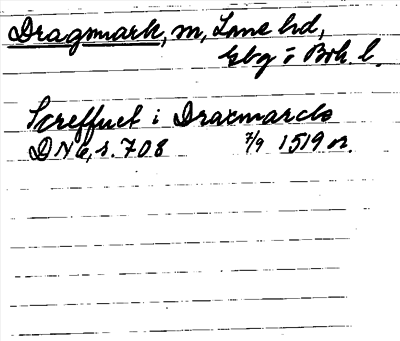 Dragmark, sn, Lane hd,
Gbg o Boh. l.
Screffuet i Draxmarcka
DN 6, s. 708 7/9 1519 or.